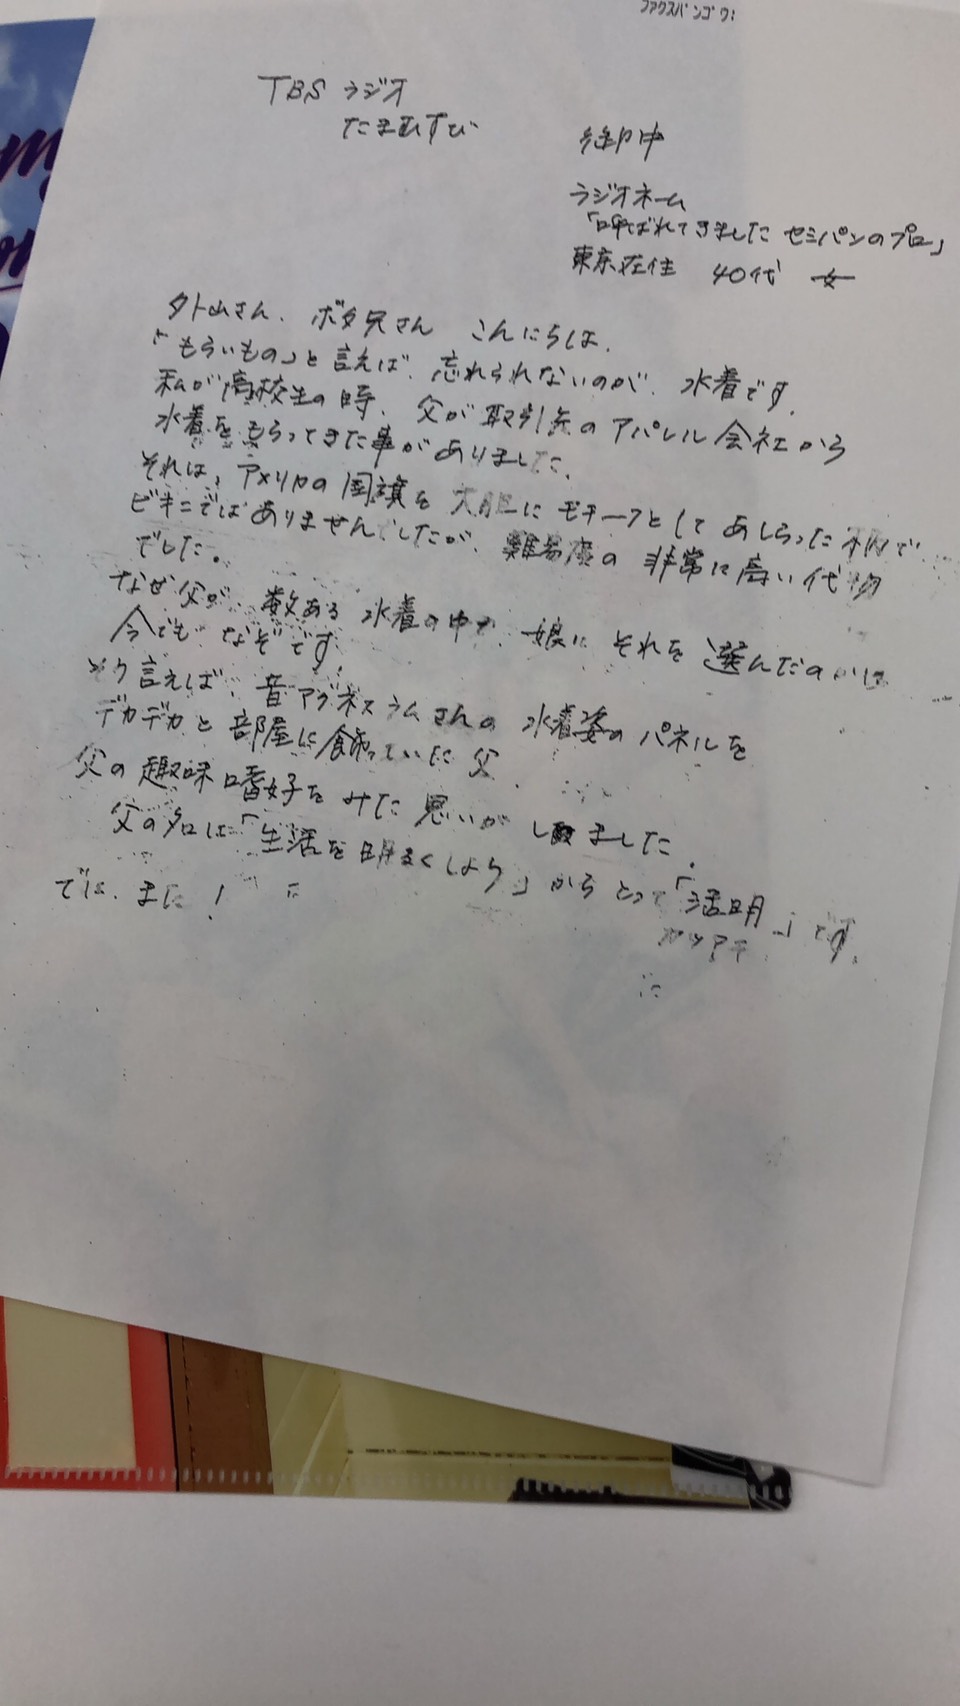 ファクスバンゴウ:
TBS ラジオ
たまむすび
御中
ラジオネーム
「呼ばれてきました セミパンのプロ」
東京在住 40代 女
外山さん、ボタ兄さん こんにちは。
「もらいもの」と言えば、忘れられないのが、水着です。
私が高校生の時、父が取引先のアパレル会社から
水着をもらってきた事がありました。
それは、アメリカの国旗を大胆にモチーフとしてあしらった柄で
ビキニではありませんでしたが、難易度の非常に高い代物
でした。
なぜ父が、数ある水着の中で、娘にそれを選んだのかは
今でもなぞです!
そう言えば、昔アグネスラムさんの水着姿のパネルを
デカデカと部屋に飾っていた父
父の趣味嗜好をみた思いがしました。
父の名は「生活を明るくしよう」からとって「活明」です。
カツアキ
では、また!